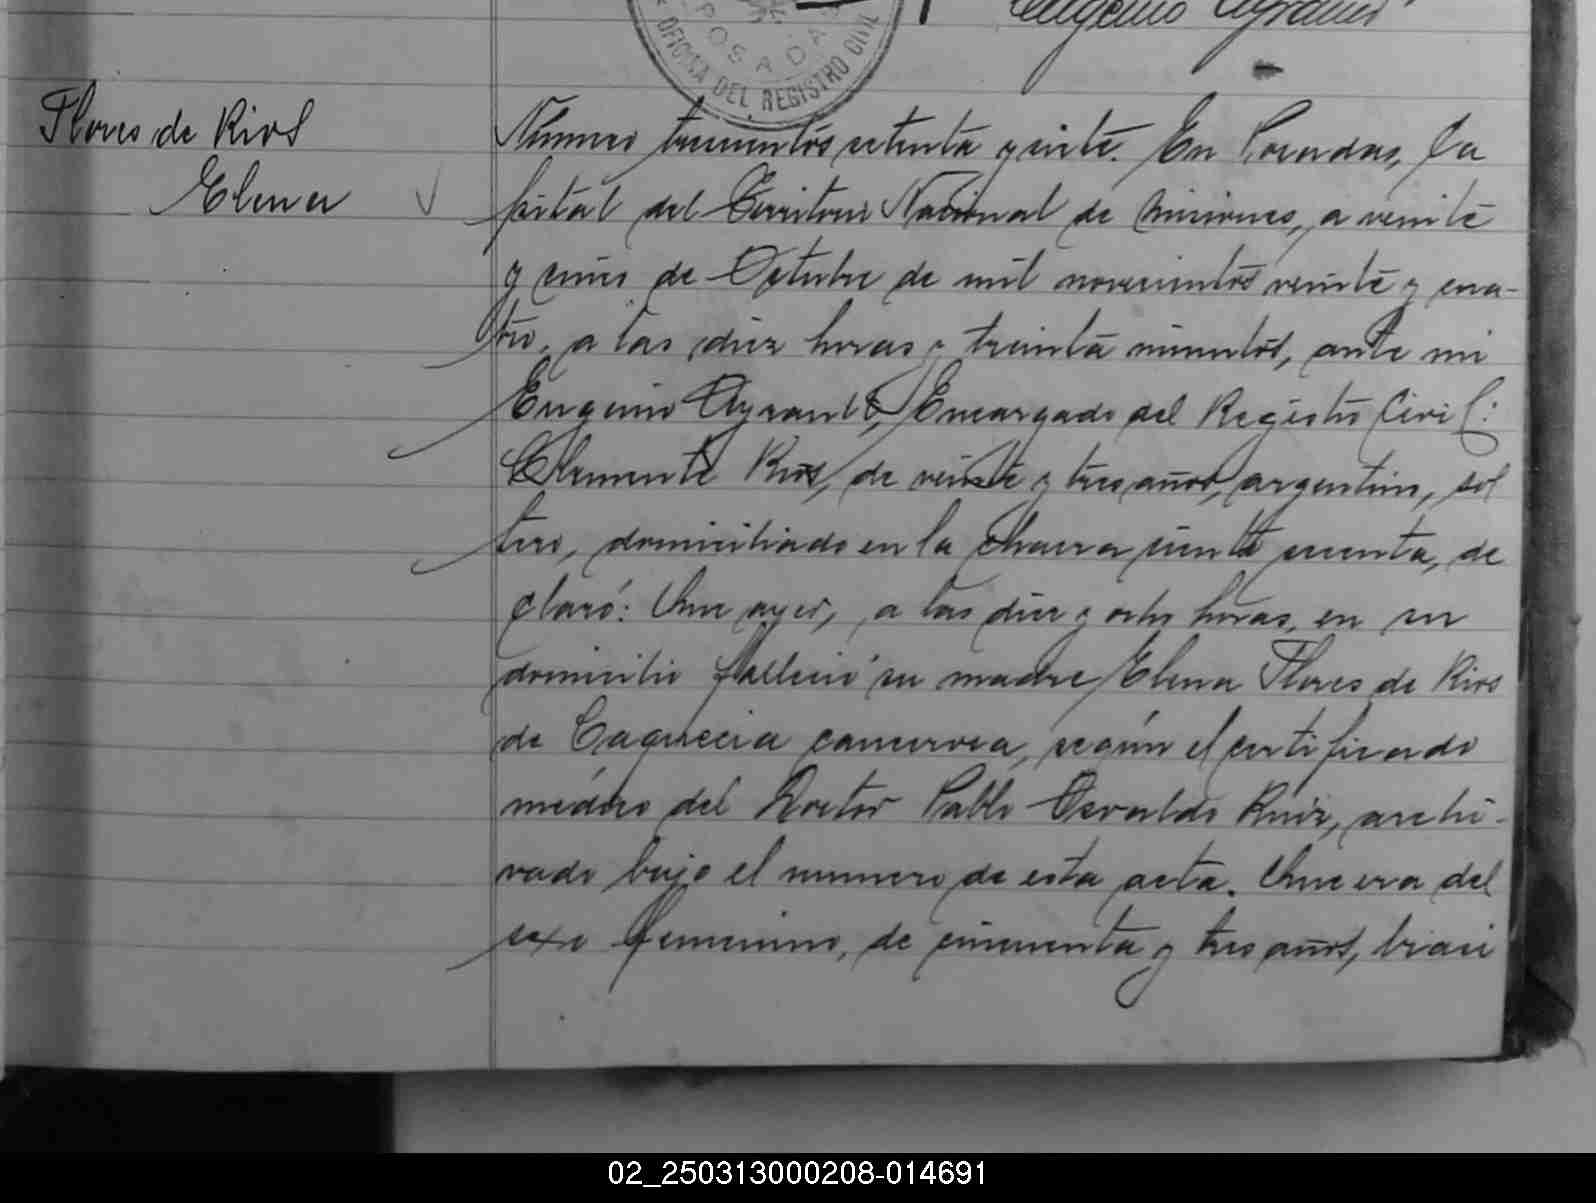 Eugenio Ayrault
POSADAS
OFICINA DEL REGISTRO CIVIL
Flores de Rios
Elena
Número trescientos setenta y siete. En Posadas, Ca
pital del Territorio Nacional de Misiones, a veinte
y cinco de Octubre de mil novecientos veinte y cua-
tro, a las diez horas y treinta minutos, ante mi
Eugenio Ayrault, Encargado del Registro Civil:
Clemente Rios, de veinte y tres años, argentino, sol
tero, domiciliado en la chacra ciento sesenta, de
claró: Que ayer, a las diez y ocho horas, en su
domicilio falleció su madre Elena Flores de Rios
de Caquecia cancerosa, según el certificado
médico del Doctor Pablo Osvaldo Ruiz, archi-
vado bajo el numero de esta acta. Que era del
sexo femenino, de cincuenta y tres años, brasi
02_250313000208-014691